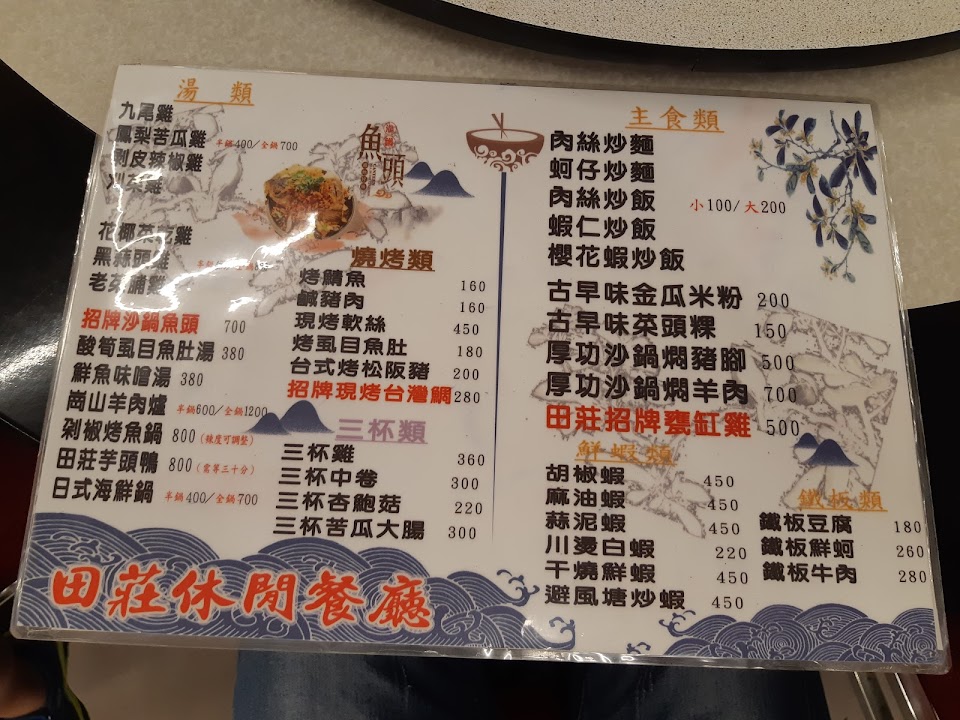 湯 類
九尾雞
鳳梨苦瓜雞 半鍋400/全鍋700
剝皮辣椒雞
刈菜雞
花椰菜乾雞
黑蒜頭雞
老菜脯雞
招牌沙鍋魚頭 700
酸筍虱目魚肚湯 380
鮮魚味噌湯 380
崗山羊肉爐 半鍋600/全鍋1200
剁椒烤魚鍋 800 (辣度可調整)
田莊芋頭鴨 800 (需等三十分)
日式海鮮鍋 半鍋400/全鍋700
魚頭
燒烤類
烤鯖魚 160
鹹豬肉 160
現烤軟絲 450
烤虱目魚肚 180
台式烤松阪豬 200
招牌現烤台灣鯛 280
三杯類
三杯雞 360
三杯中卷 300
三杯杏鮑菇 220
三杯苦瓜大腸 300
主食類
肉絲炒麵
蚵仔炒麵
肉絲炒飯 小100/大200
蝦仁炒飯
櫻花蝦炒飯
古早味金瓜米粉 200
古早味菜頭粿 150
厚功沙鍋燜豬腳 500
厚功沙鍋燜羊肉 700
田莊招牌甕缸雞 500
鮮蝦類
胡椒蝦 450
麻油蝦 450
蒜泥蝦 450
川燙白蝦 220
干燒鮮蝦 450
避風塘炒蝦 450
鐵板類
鐵板豆腐 180
鐵板鮮蚵 260
鐵板牛肉 280
田莊休閒餐廳